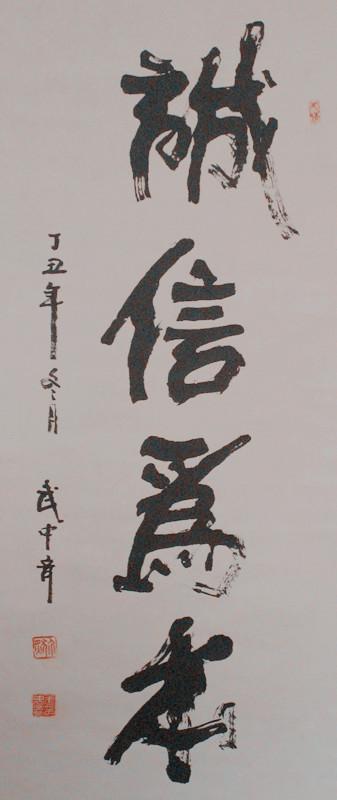 誠信為本
丁丑年冬月 武中奇